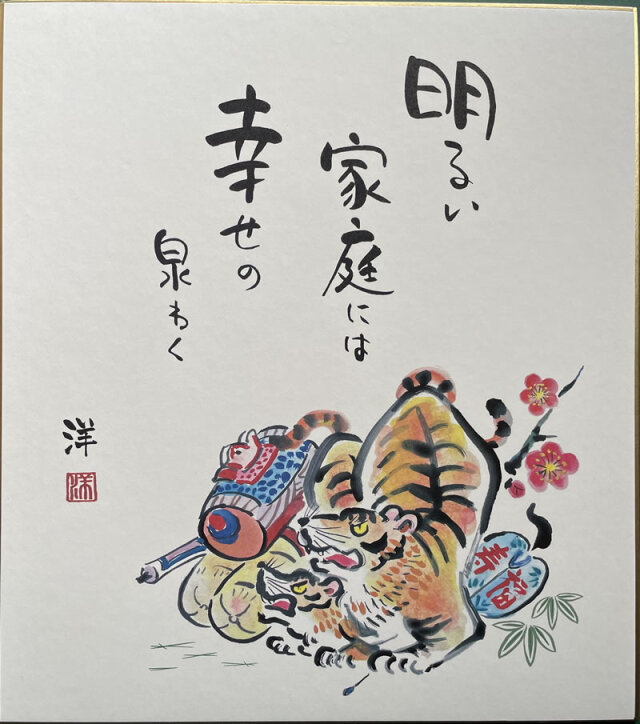 明るい
家庭には
幸せの
泉わく
洋
洋
福寿